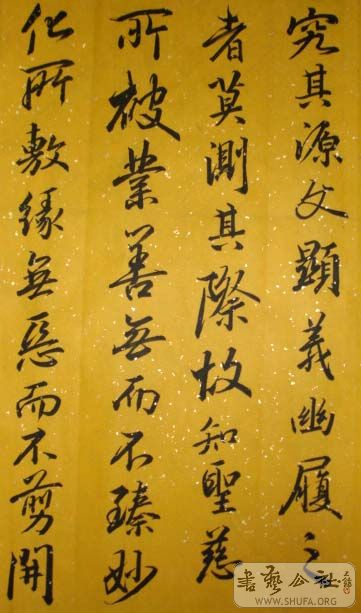 究其源文顯義幽履之
者莫測其際故知聖慈
所被業善無而不臻妙
化所敷緣無惡而不剪開
書藝公社
WWW.SHUFA.ORG